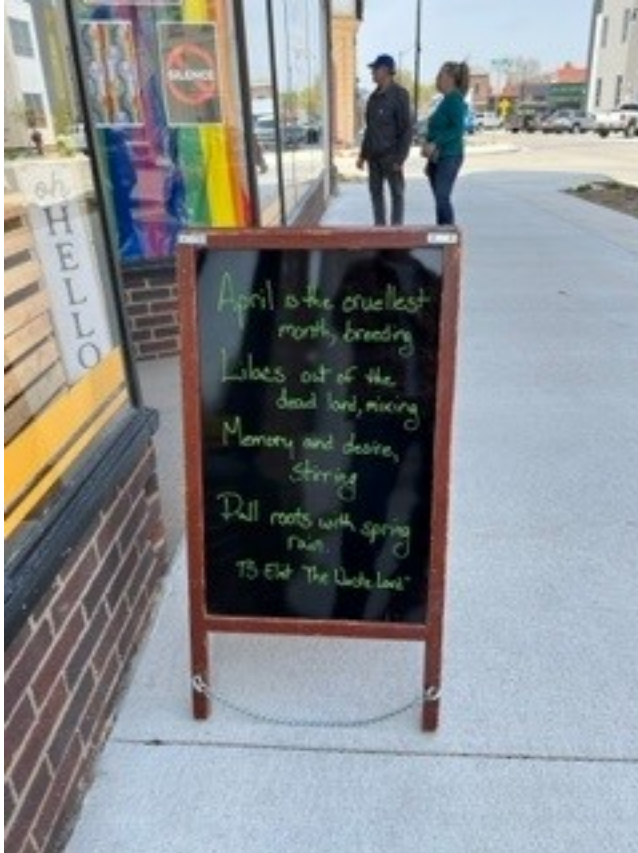 SILENCE
oh
HELLO
April is the cruellest
month, breeding
Lilacs out of the
dead land, mixing
Memory and desire,
stirring
Dull roots with spring
rain.
TS Eliot "The Waste Land"